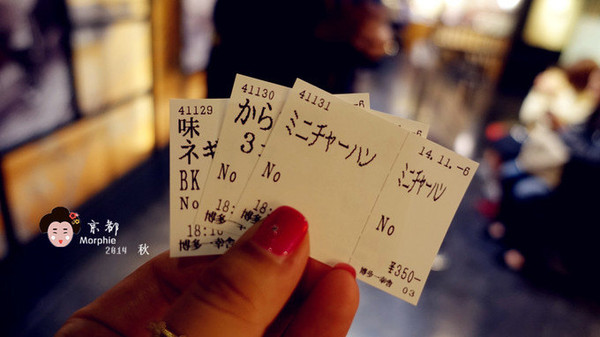 41129
味
ネギ
BK
No
18:10
博多一幸舎
41130
から
3
No
18:
博多
41131
ミニチャーハン
No
18:
博多一幸舎
14.11.-6
ミニチャーハン
No
¥350-
博多一幸舎
03
京都
Morphie
2014 秋